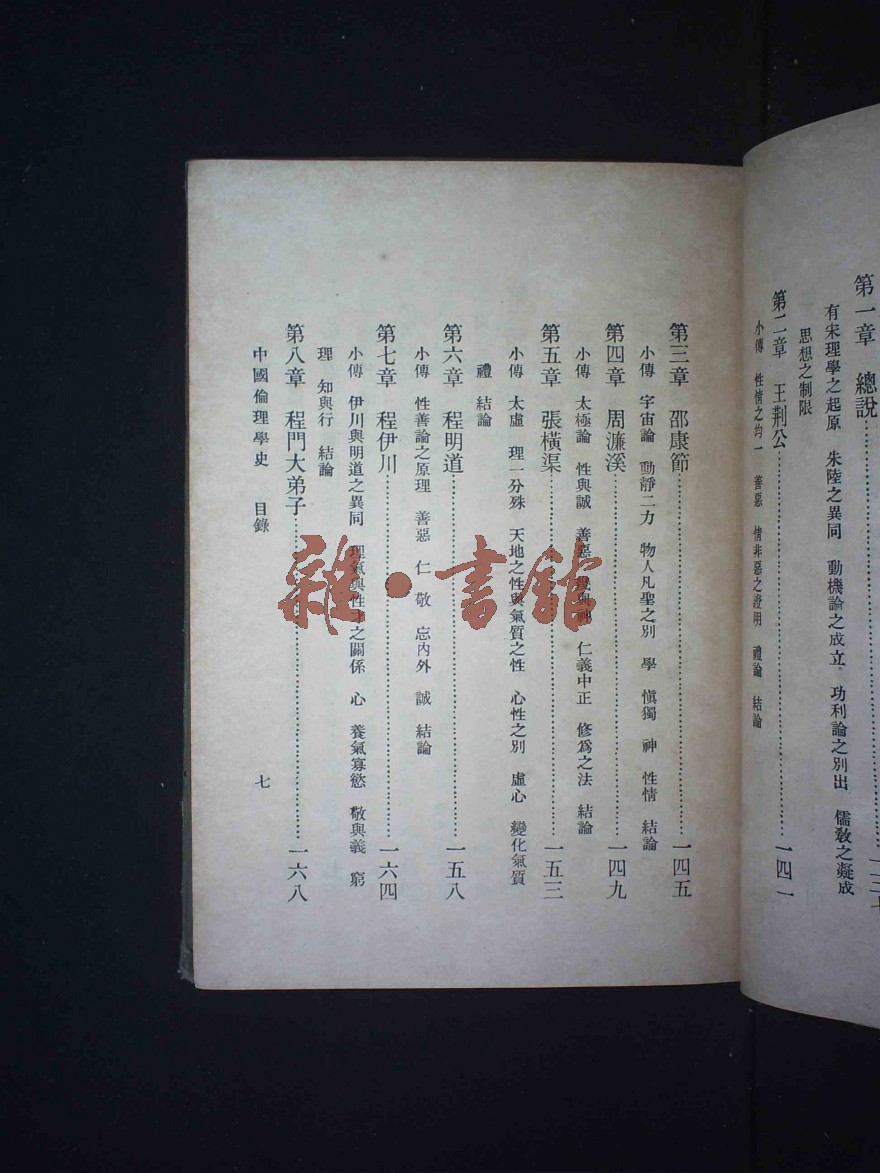 第一章　總說
有宋理學之起原　朱陸之異同　動機論之成立　功利論之別出　儒教之凝成
思想之制限
第二章　王荆公一四一
小傳　性情之均一　善惡　情非惡之證明　禮論　結論
第三章　邵康節一四五
小傳　宇宙論　動靜二力　物人凡聖之別　學　愼獨　神　性情　結論
第四章　周濂溪一四九
小傳　太極論　性與誠　善惡　幾與神　仁義中正　修爲之法　結論
第五章　張橫渠一五三
小傳　太虛　理一分殊　天地之性與氣质之性　心性之別　虛心　變化氣質
禮　結論
第六章　程明道一五八
小傳　性善論之原理　善惡　仁　敬　忘內外　誠　結論
第七章　程伊川一六四
小傳　伊川與明道之異同　理氣與性才之關係　心　養氣寡慾　敬與義　窮
理　知與行　結論
第八章　程門大弟子一六八
中國倫理學史　目錄　七
雜·書館